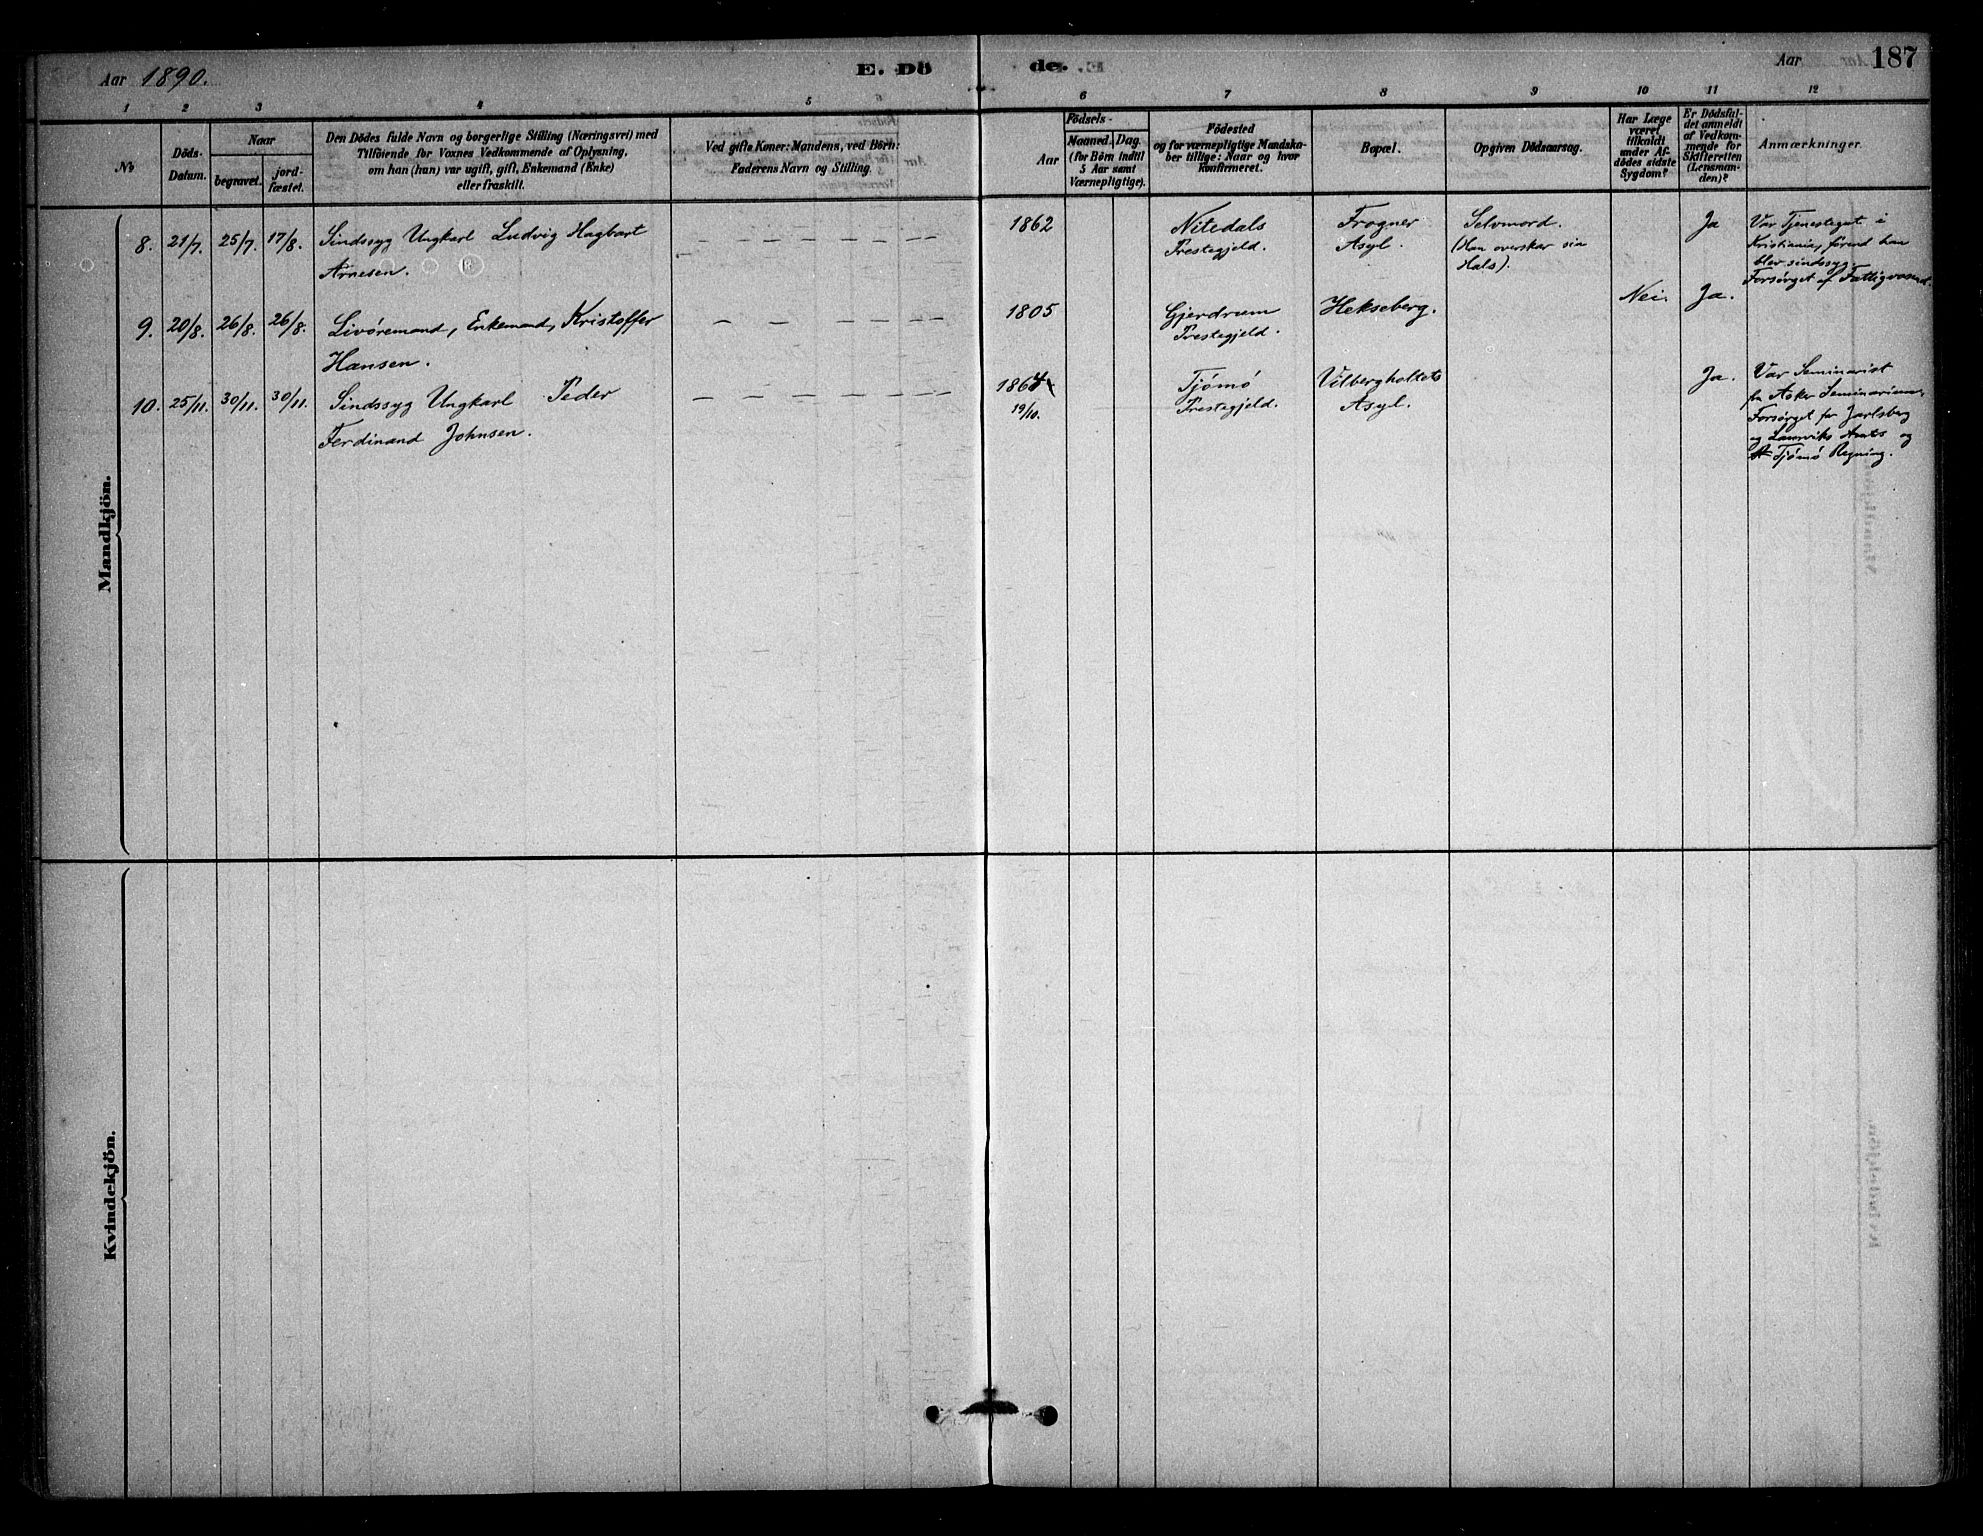 Aar 1890.
E. Dö de.
Aar 187
1 2 3 4 5 6 7 8 9 10 11 12
No
Döds-Datum.
Naar
begravet.
jord-fæstet.
Den Dödes fulde Navn og borgerlige Stilling (Næringsvei) med
Tilföiende for Voxnes Vedkommende af Oplysning,
om han (hun) var ugift, gift, Enkemand (Enke)
eller fraskilt.
Ved gifte Koner: Mandens, ved Börn:
Faderens Navn og Stilling.
Födsels-
Aar
Maaned. Dag.
(for Börn indtil
5 Aar samt
Værnepligtige).
Födested
og for værnepligtige Mandska-
ber tillige: Naar og hvor
konfirmeret.
Bopæl.
Opgiven Dödsaarsag.
Har Læge
været
tilkaldt
under Af-
dödes sidste
Sygdom?
Er Dödsfal-
det anmeldt
af Vedkom-
mende for
Skifteretten
(Lensman-
den)?
Anmærkninger.
Mandkjön.
8. 21/7. 25/7. 17/8. Sindssyg Ungkarl Ludvig Hagbart
Arnesen.
1862
Nitedals
Prestegjeld.
Frogner
Asyl.
Selvmord.
(Han overskar sin
Hals).
Ja
Var Tjenestegut i
Kristiania, förend han
blev sindssyg.
Forsørget af Fattigvæsenet.
9. 20/8. 26/8. 26/8. Livøremand, Enkemand, Kristoffer
Hansen.
1805
Gjerdrum
Prestegjeld.
Hekseberg.
Nei.
Ja.
10. 25/11. 30/11. 30/11. Sindssyg Ungkarl Peder
Ferdinand Johnsen.
1864
19/10.
Tjömö
Prestegjeld.
Vilbergholtets
Asyl.
Ja.
Var Seminarist
fra Asker Seminarium.
Forsørget for Jarlsberg
og Laurviks Amts og
Tjömö Regning.
Kvindekjön.